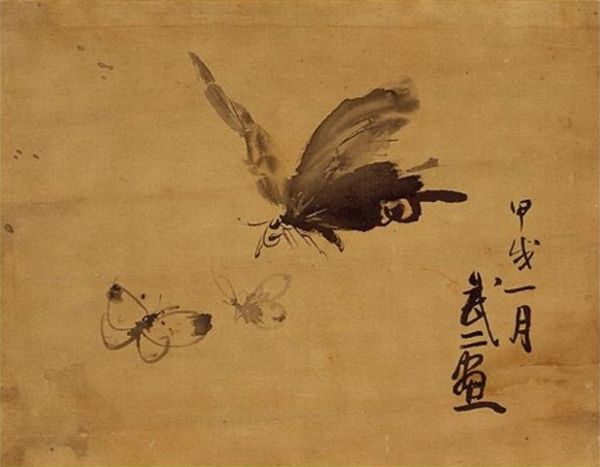 甲戌一月
武二画